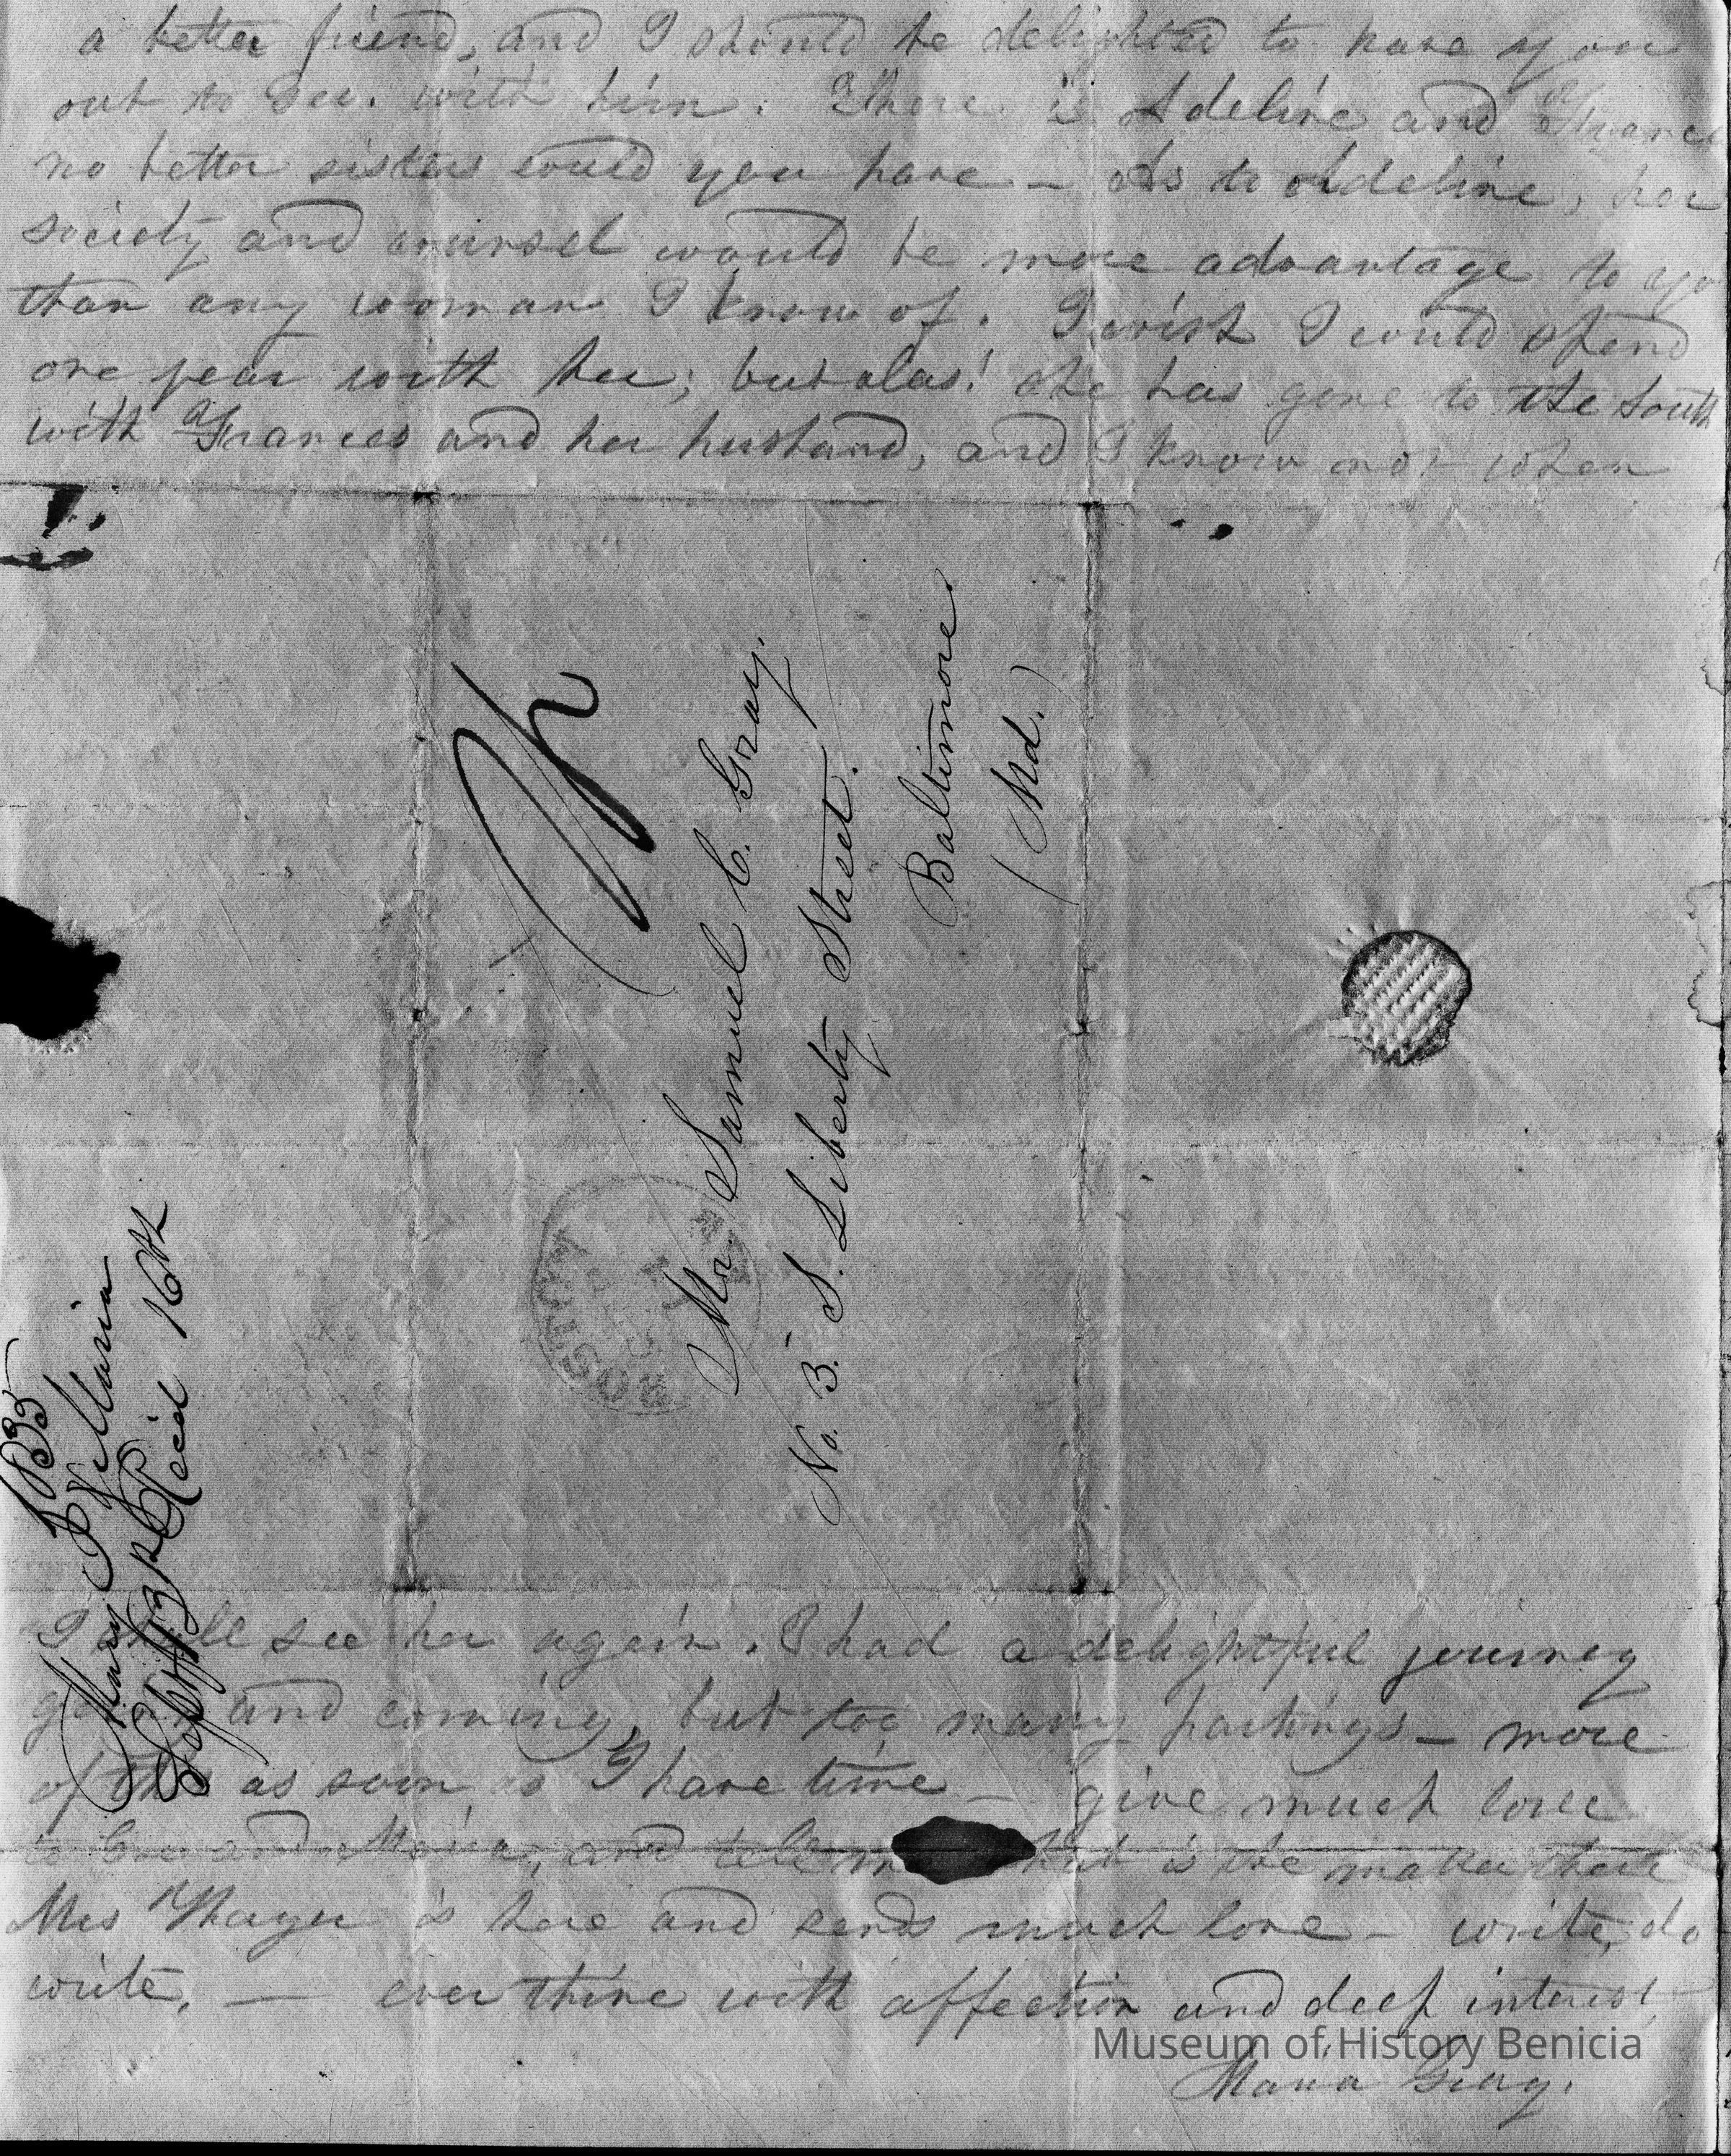 a better friend, and I should be delighted to have you
out to see. with him. There is Adeline and Frances
no better sisters could you have - As to Adeline, her
society and counsel would be more advantage to yo
than any woman I know of. I wish I could spend
one year with her; but alas! she has gone to the South
with Frances and her husband, and I know not when
Mr. Samuel C. Gray.
No. 3. S. Liberty Street.
Baltimore
(Md.)
BOSTON
1835
Mary Maria
Sept 13 Recd 16th
I shall see her again. I had a delightful journey
going and coming, but too many partings - more
of this as soon as I have time - give much love
to and and tell me what is the matter there
Mrs Thayer is here and sends much love - write, do
write. — ever thine with affection and deep interest
Maria Gray.
Museum of History Benicia